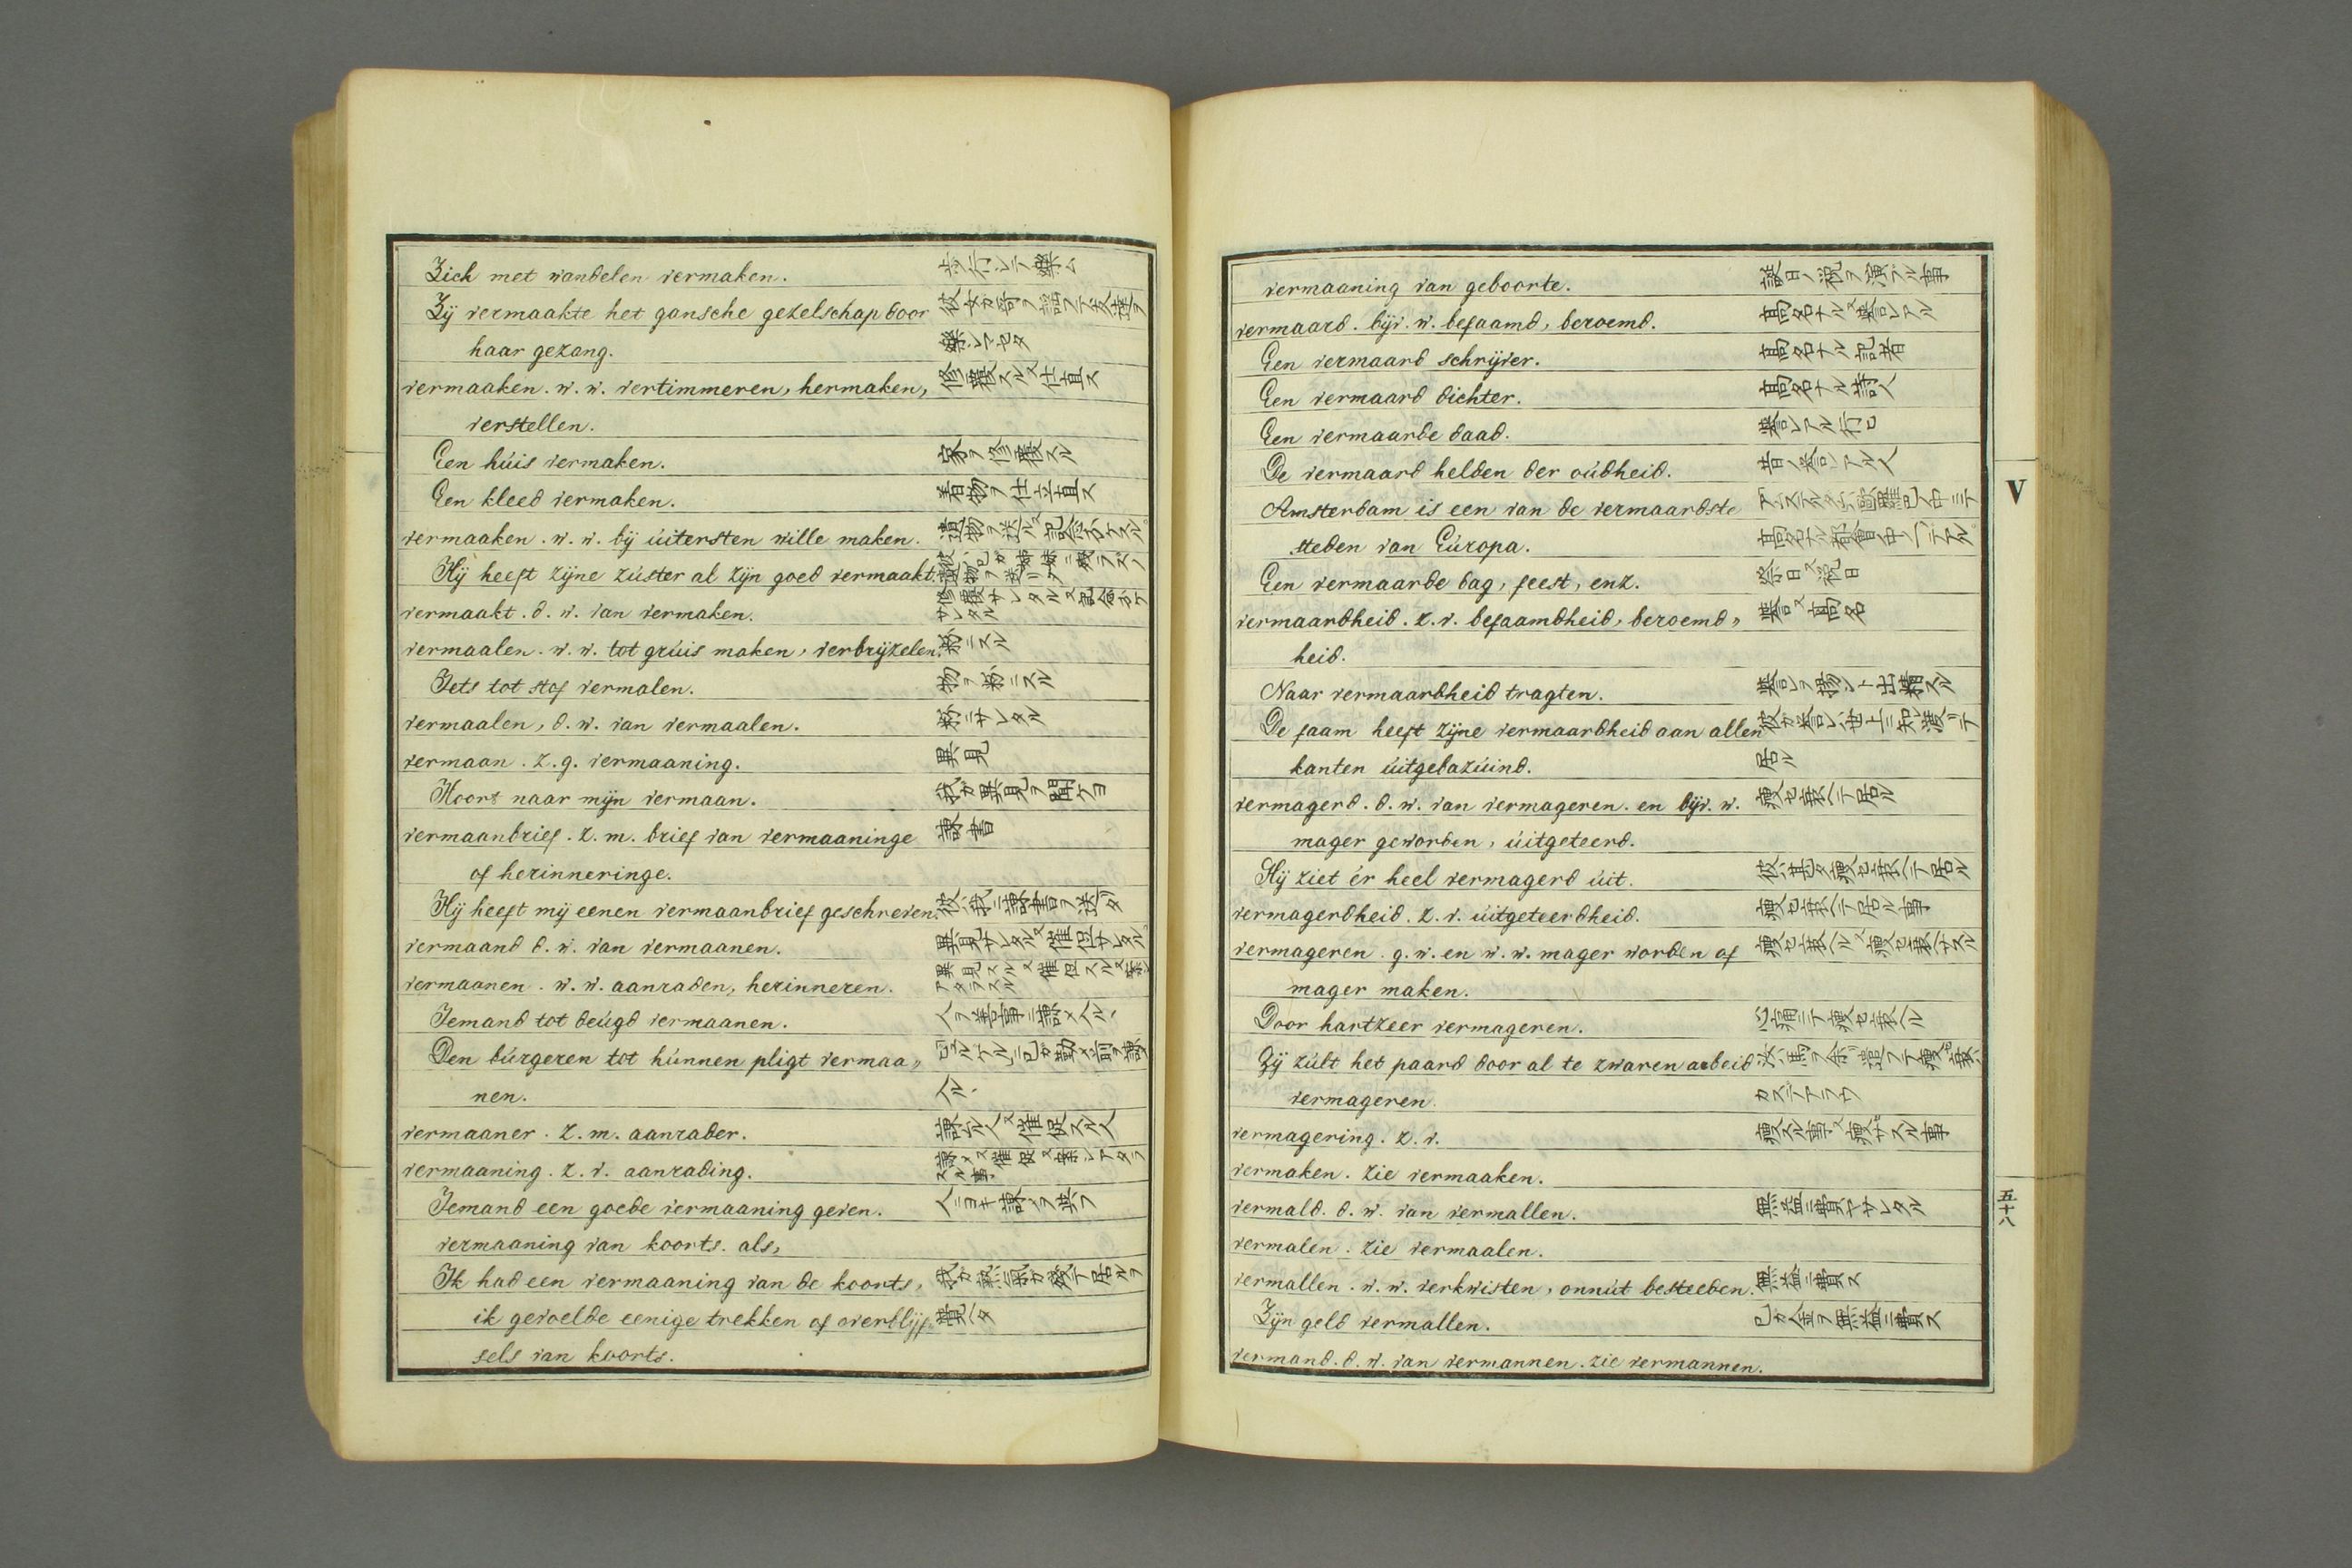 Zich met wandelen vermaken. 歩行シテ樂ム
Zij vermaakte het gansche gezelschap door 彼女ガ哥ヲ謡フテ友達ヲ
haar gezang. 樂シマセタ
vermaaken. w. w. vertimmeren, hermaken, 修覆スル又仕直ス
verstellen.
Een húis vermaken. 家ヲ修覆スル
Een kleed vermaken. 着物ヲ仕立直ス
vermaaken. w. w. bij úitersten wille maken. 遺物ヲ送ル
Hij heeft zijne zúster al zijn goed vermaakt.
vermaakt. d. w. van vermaken. 修覆サレタル
vermaalen. w. w. tot grúis maken, verbrijzelen. 粉ニスル
Iets tot stof vermalen. 物ヲ粉ニスル
vermaalen, d. w. van vermaalen. 粉ニサレタル
vermaan. z. g. vermaaning. 異見
Hoort naar mijn vermaan. 我ガ異見ヲ聞ケヨ
vermaanbrief. z. m. brief van vermaaninge 諌書
of herinneringe.
Hij heeft mij eenen vermaanbrief geschreven. 彼ハ我ニ諌書ヲ送リタ
vermaand d. w. van vermaanen. 異見サレタル又催促サレタル
vermaanen. w. w. aanraden, herinneren. 異見スル又催促スル
Iemand tot deúgd vermaanen. 人ヲ善事ニ諌メ入ルヽ
Den búrgeren tot húnnen pligt vermaa„
nen. 入ルヽ
vermaaner. z. m. aanrader. 諌ル人又催促スル人
vermaaning. z. v. aanrading.
Iemand een goede vermaaning geven. 人ニヨキ諌メヲ與フ
vermaaning van koorts. als,
Ik had een vermaaning van de koorts, 我ガ熱氣ガ發テ居ルヲ
ik gevoelde eenige trekken of overblijf- 覺ヘタ
sels van koorts.
vermaaning van geboorte. 誕日ノ祝ヲ演ブル事
vermaard. bijv. w. befaamd, beroemd. 高名ナル又誉レアル
Een vermaard schrijver. 高名ナル記者
Een vermaard dichter. 高名ナル詩人
Een vermaarde daad. 誉レアル行ヒ
De vermaard helden der oúdheid. 昔ノ誉レアル人
Amsterdam is een van de vermaardste アムステルダムハ歐羅巴ノ中ニテ
steden van Eúropa. 高名ナル都會ノ中ノ一ツデアル
Een vermaarde dag, feest, enz. 祭日又祝日
vermaardheid. z. v. befaamdheid, beroemd„ 誉レ又高名
heid.
Naar vermaardheid tragten. 誉レヲ揚ント出精スル
De faam heeft zijne vermaardheid aan allen 彼ガ誉レハ世上ニ知レ渡リテ
kanten úitgebazúind. 居ル
vermagerd. d. w. van vermageren. en bijv. w. 瘦セ衰ヘテ居ル
mager geworden, úitgeteerd.
Hij ziet ér heel vermagerd úit. 彼ハ甚タ瘦セ衰ヘテ居ル
vermagerdheid. z. v. úitgeteerdheid. 瘦セ衰ヘテ居ル事
vermageren. g. w. en w. w. mager worden of 瘦セ衰ヘル又瘦セ衰ヘサスル
mager maken.
Door hartzeer vermageren. 心痛ニテ瘦セ衰ヘル
Gij zúlt het paard door al te zwaren arbeid
vermageren.
vermagering. z. v. 瘦スル事又瘦サスル事
vermaken. zie vermaaken.
vermald. d. w. van vermallen. 無益ニ費ヤサレタル
vermalen. zie vermaalen.
vermallen. w. w. verkwisten, onnút besteeden. 無益ニ費ス
Zijn geld vermallen. 己ガ金ヲ無益ニ費ス
vermand. d. w. van vermannen. zie vermannen.
V
五十八